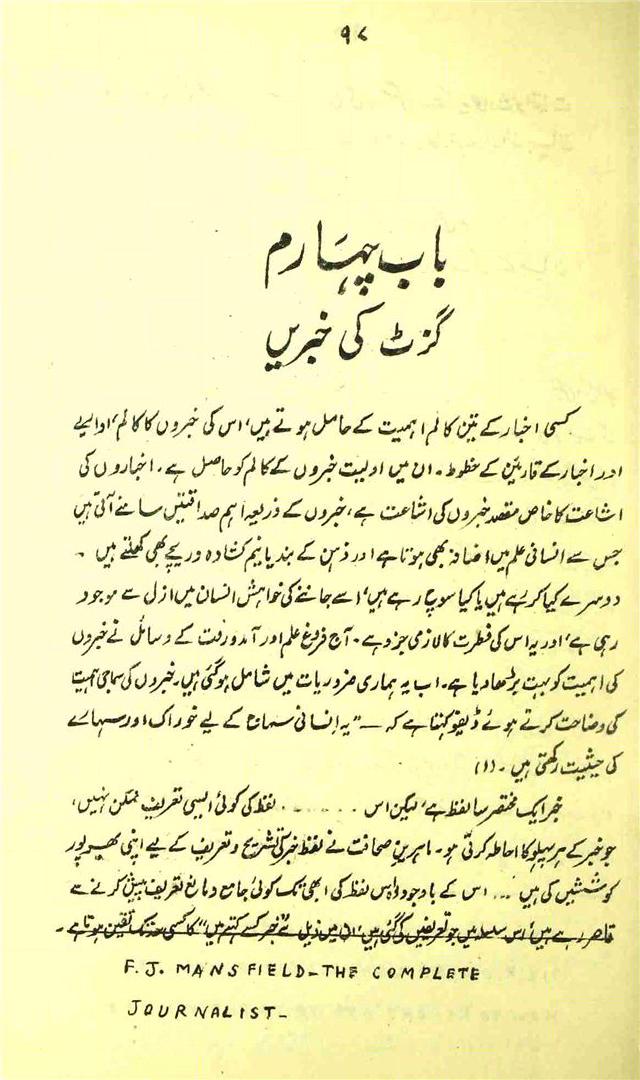 ۹۷
باب چہارم
گزٹ کی خبریں
کسی اخبار کے تین کالم اہمیت کے حامل ہوتے ہیں، اس کی خبروں کا کالم، اداریے
اور اخبار کے قارئین کے خطوط۔ ان میں اولیت خبروں کے کالم کو حاصل ہے۔ اخباروں کی
اشاعت کا خاص مقصد خبروں کی اشاعت ہے، خبروں کے ذریعہ اہم صداقتیں سامنے آتی ہیں
جس سے انسانی علم میں اضافہ بھی ہوتا ہے اور ذہن کے بند یا نیم کشادہ دریچے بھی کھلتے ہیں۔
دوسرے کیا کر رہے ہیں یا کیا سوچ رہے ہیں، اسے جاننے کی خواہش انسان میں ازل سے موجود
رہی ہے، اور یہ اس کی فطرت کا لازمی جزو ہے۔ آج فروغ علم اور آمد و رفت کے وسائل نے خبروں
کی اہمیت کو بہت بڑھا دیا ہے۔ اب یہ ہماری ضروریات میں شامل ہو گئی ہیں۔ خبروں کی سماجی اہمیت
کی وضاحت کرتے ہوئے ڈیفو کہتا ہے کہ — "یہ انسانی سماج کے لیے خوراک اور سہارے
کی حیثیت رکھتی ہیں۔ (۱)
خبر ایک مختصر سا لفظ ہے، لیکن اس ...... لفظ کی کوئی ایسی تعریف ممکن نہیں،
جو خبر کے ہر پہلو کا احاطہ کرتی ہو۔ ماہرین صحافت نے لفظ خبر کی تشریح و تعریف کے لیے اپنی بھرپور
کوششیں کی ہیں ... اس کے باوجود وہ اس لفظ کی ابھی تک کوئی جامع و مانع تعریف پیش کرنے سے
قاصر رہے ہیں، اس سلسلہ میں جو تعریفیں کی گئی ہیں، ان میں ذیل نے "خبر کسے کہتے ہیں" کا کسی حد تک تعین ہوتا ہے۔
F. J. MANSFIELD – THE COMPLETE
JOURNALIST –